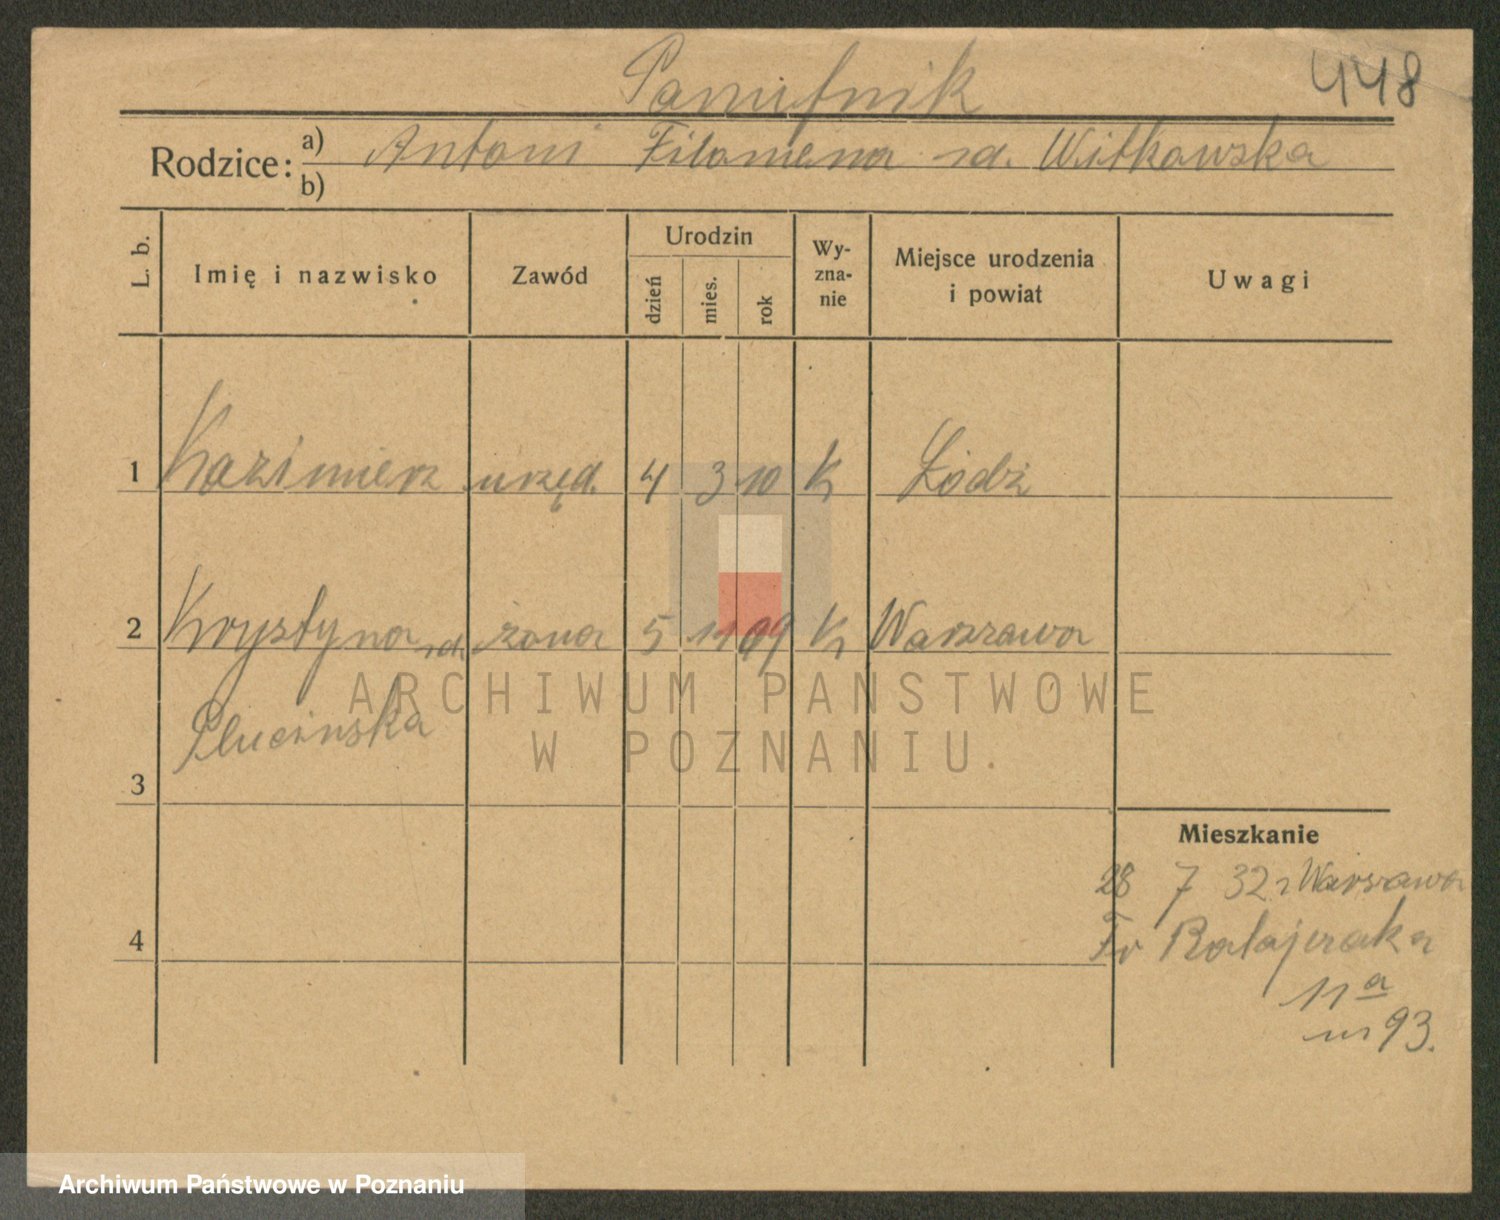 Pamufnik 448
Rodzice: a) Antoni Filomena rd. Witkowska
b)
L. b. Imię i nazwisko Zawód Urodzin dzień mies. rok Wy-zna-nie Miejsce urodzenia i powiat Uwagi
1 Kazimierz urzęd. 4 3 10 K Łódź
2 Krystyna rd. żona 5 11 09 K Warszawa
Plucinska
3
Mieszkanie
28 7 32 z Warszawa
4
Fr Ratajczaka
11a
m 93.
ARCHIWUM PAŃSTWOWE
W POZNANIU
Archiwum Państwowe w Poznaniu